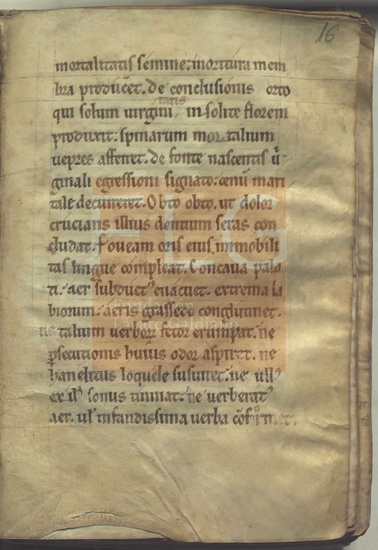 16
mortalitatis semine: moritura mem
bra produceret. de conclusionis orto
qui solum virginitatis insolite florem
produxit: spinarum mortalium
uepres afferret. de fonte nascentis ui
ginali egressioni signato: cenum mari
tale decurreret. Obto obto. ut dolor
crucians illius dentium seras con
cludat. foueam oris eius immobili
tas lingue compleat. Concaua pala
ti. aer subductus euacuet. extrema la
biorum. aeris grassedo conglutinet.
ne talium uerborum fetor erumpat. ne
persecutionis huius odor aspiret. ne
hanelitus loquele susurret. ne ullus
ex illis sonus tinniat. ne uerberatus
aer. uel infandissima uerba confirmet.